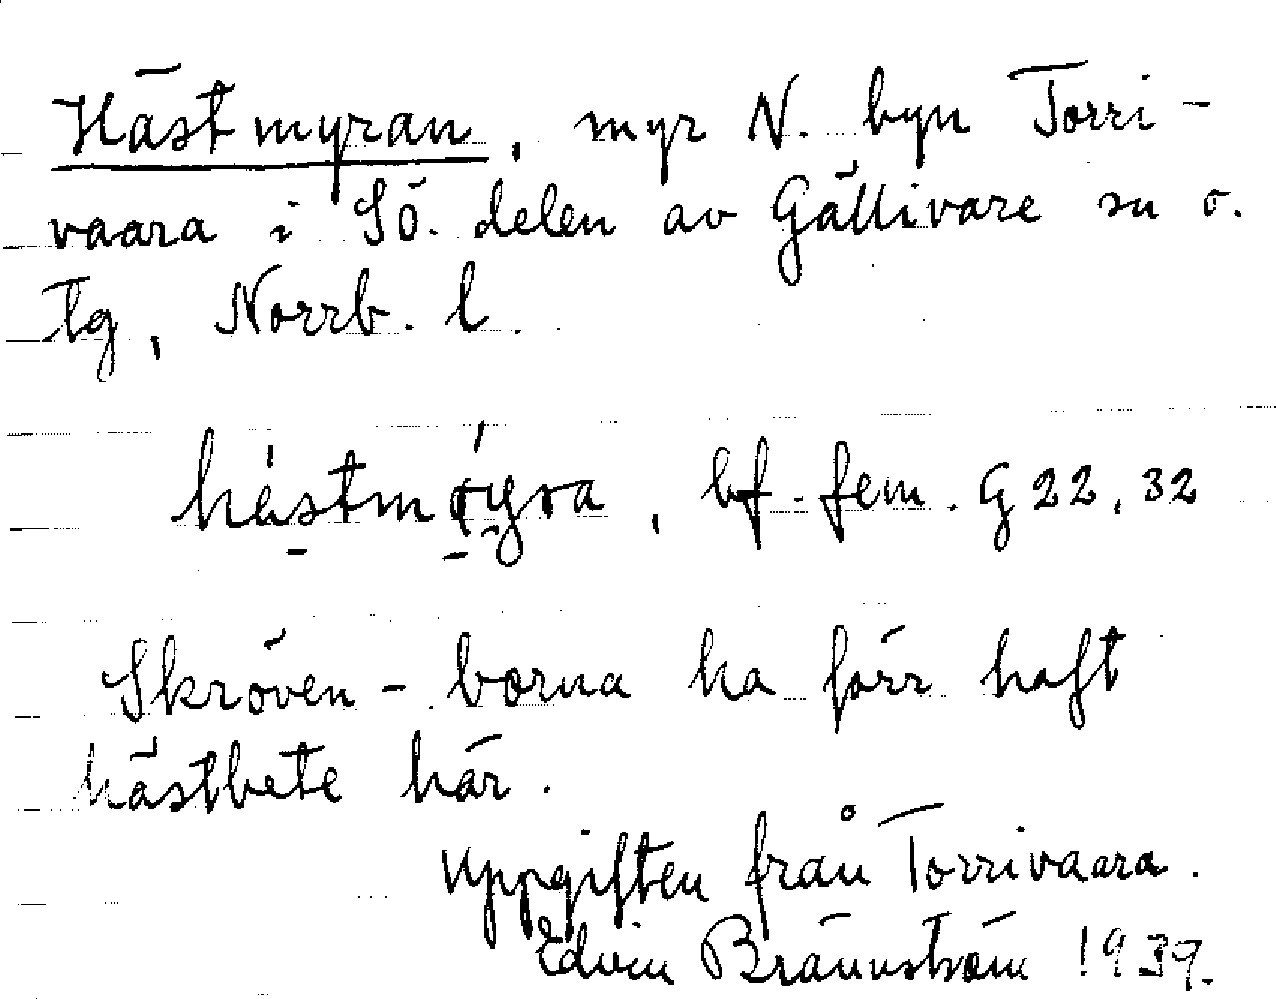 Hästmyran, myr N. byn Torri-
vaara i SÖ. delen av Gällivare sn o.
tg, Norrb. l.
hästmøyra, bf. fem. G 22, 32
Skröven-borna ha förr haft
hästbete här.
Uppgiften från Torrivaara.
Edvin Brännström 1939.